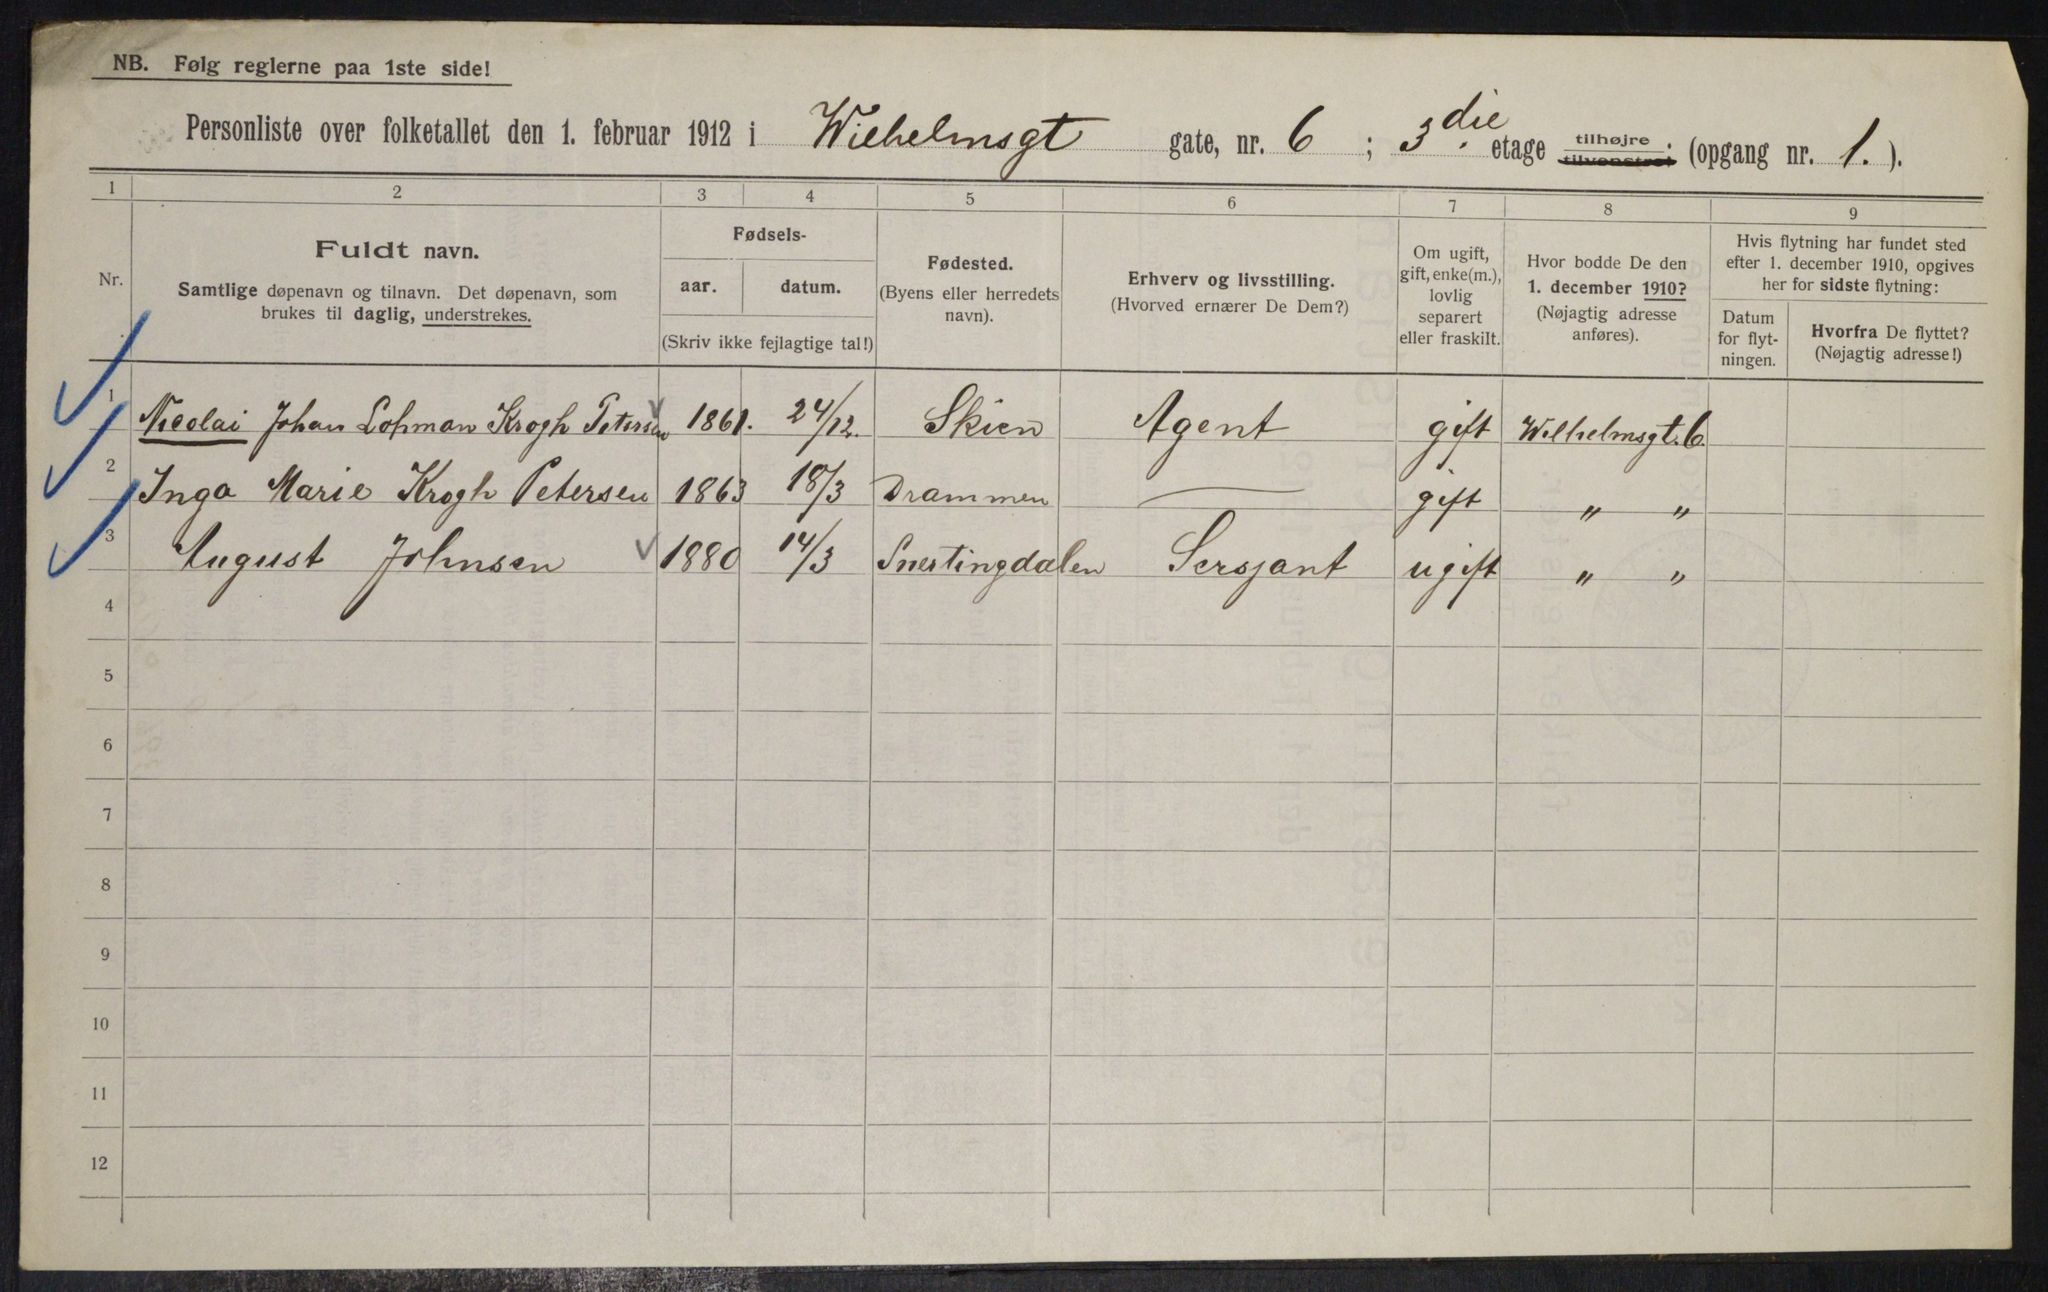 NB. Følg reglerne paa 1ste side!
Personliste over folketallet den 1. februar 1912 i Wilhelmsgt gate, nr. 6 ; 3die. etage tilhøjre. tilvenstre. (opgang nr. 1. ).
1 2 3 4 5 6 7 8 9
Nr.
Fuldt navn.
Samtlige døpenavn og tilnavn. Det døpenavn, som
brukes til daglig, understrekes.
Fødsels-
aar. datum.
(Skriv ikke fejlagtige tal!)
Fødested.
(Byens eller herredets
navn).
Erhverv og livsstilling.
(Hvorved ernærer De Dem?)
Om ugift,
gift, enke(m.),
lovlig
separert
eller fraskilt.
Hvor bodde De den
1. december 1910?
(Nøjagtig adresse
anføres).
Hvis flytning har fundet sted
efter 1. december 1910, opgives
her for sidste flytning:
Datum
for flyt-
ningen.
Hvorfra De flyttet?
(Nøjagtig adresse!)
1 Nicolai Johan Lohman Krogh Petersen 1861. 24/12. Skien Agent gift Wilhelmsgt. 6
2 Inga Marie Krogh Petersen 1863 18/3 Drammen — gift " "
3 August Johnsen 1880 14/3 Snertingdalen Sersjant ugift " "
4
5
6
7
8
9
10
11
12